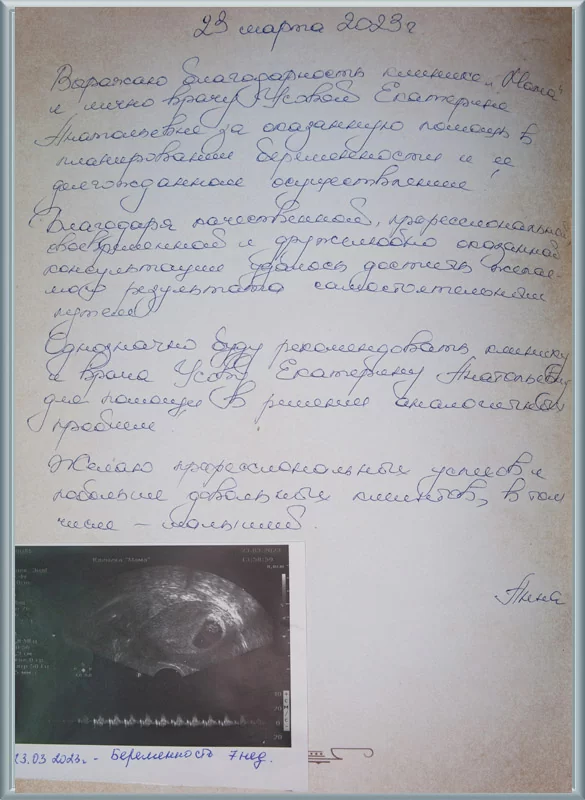 23 марта 2023г
Выражаю благодарность клинике „Мама"
и лично врачу Усовой Екатерине
Анатольевне за оказанную помощь в
планировании беременности и ее
долгожданном осуществлении!
Благодаря качественной, профессиональной,
своевременной и дружелюбно оказанной
консультации удалось достичь желае-
мого результата самостоятельным
путем!
Однозначно буду рекомендовать клинику
и врача Усову Екатерину Анатольевну
для помощи в решении аналогичных
проблем.
Желаю профессиональных успехов и
побольше довольных клиентов, в том
числе – малышей.
Анна
Клиника "Мама"
23.03.2023
13:58:59
23.03 2023г. - Беременность 7 нед.